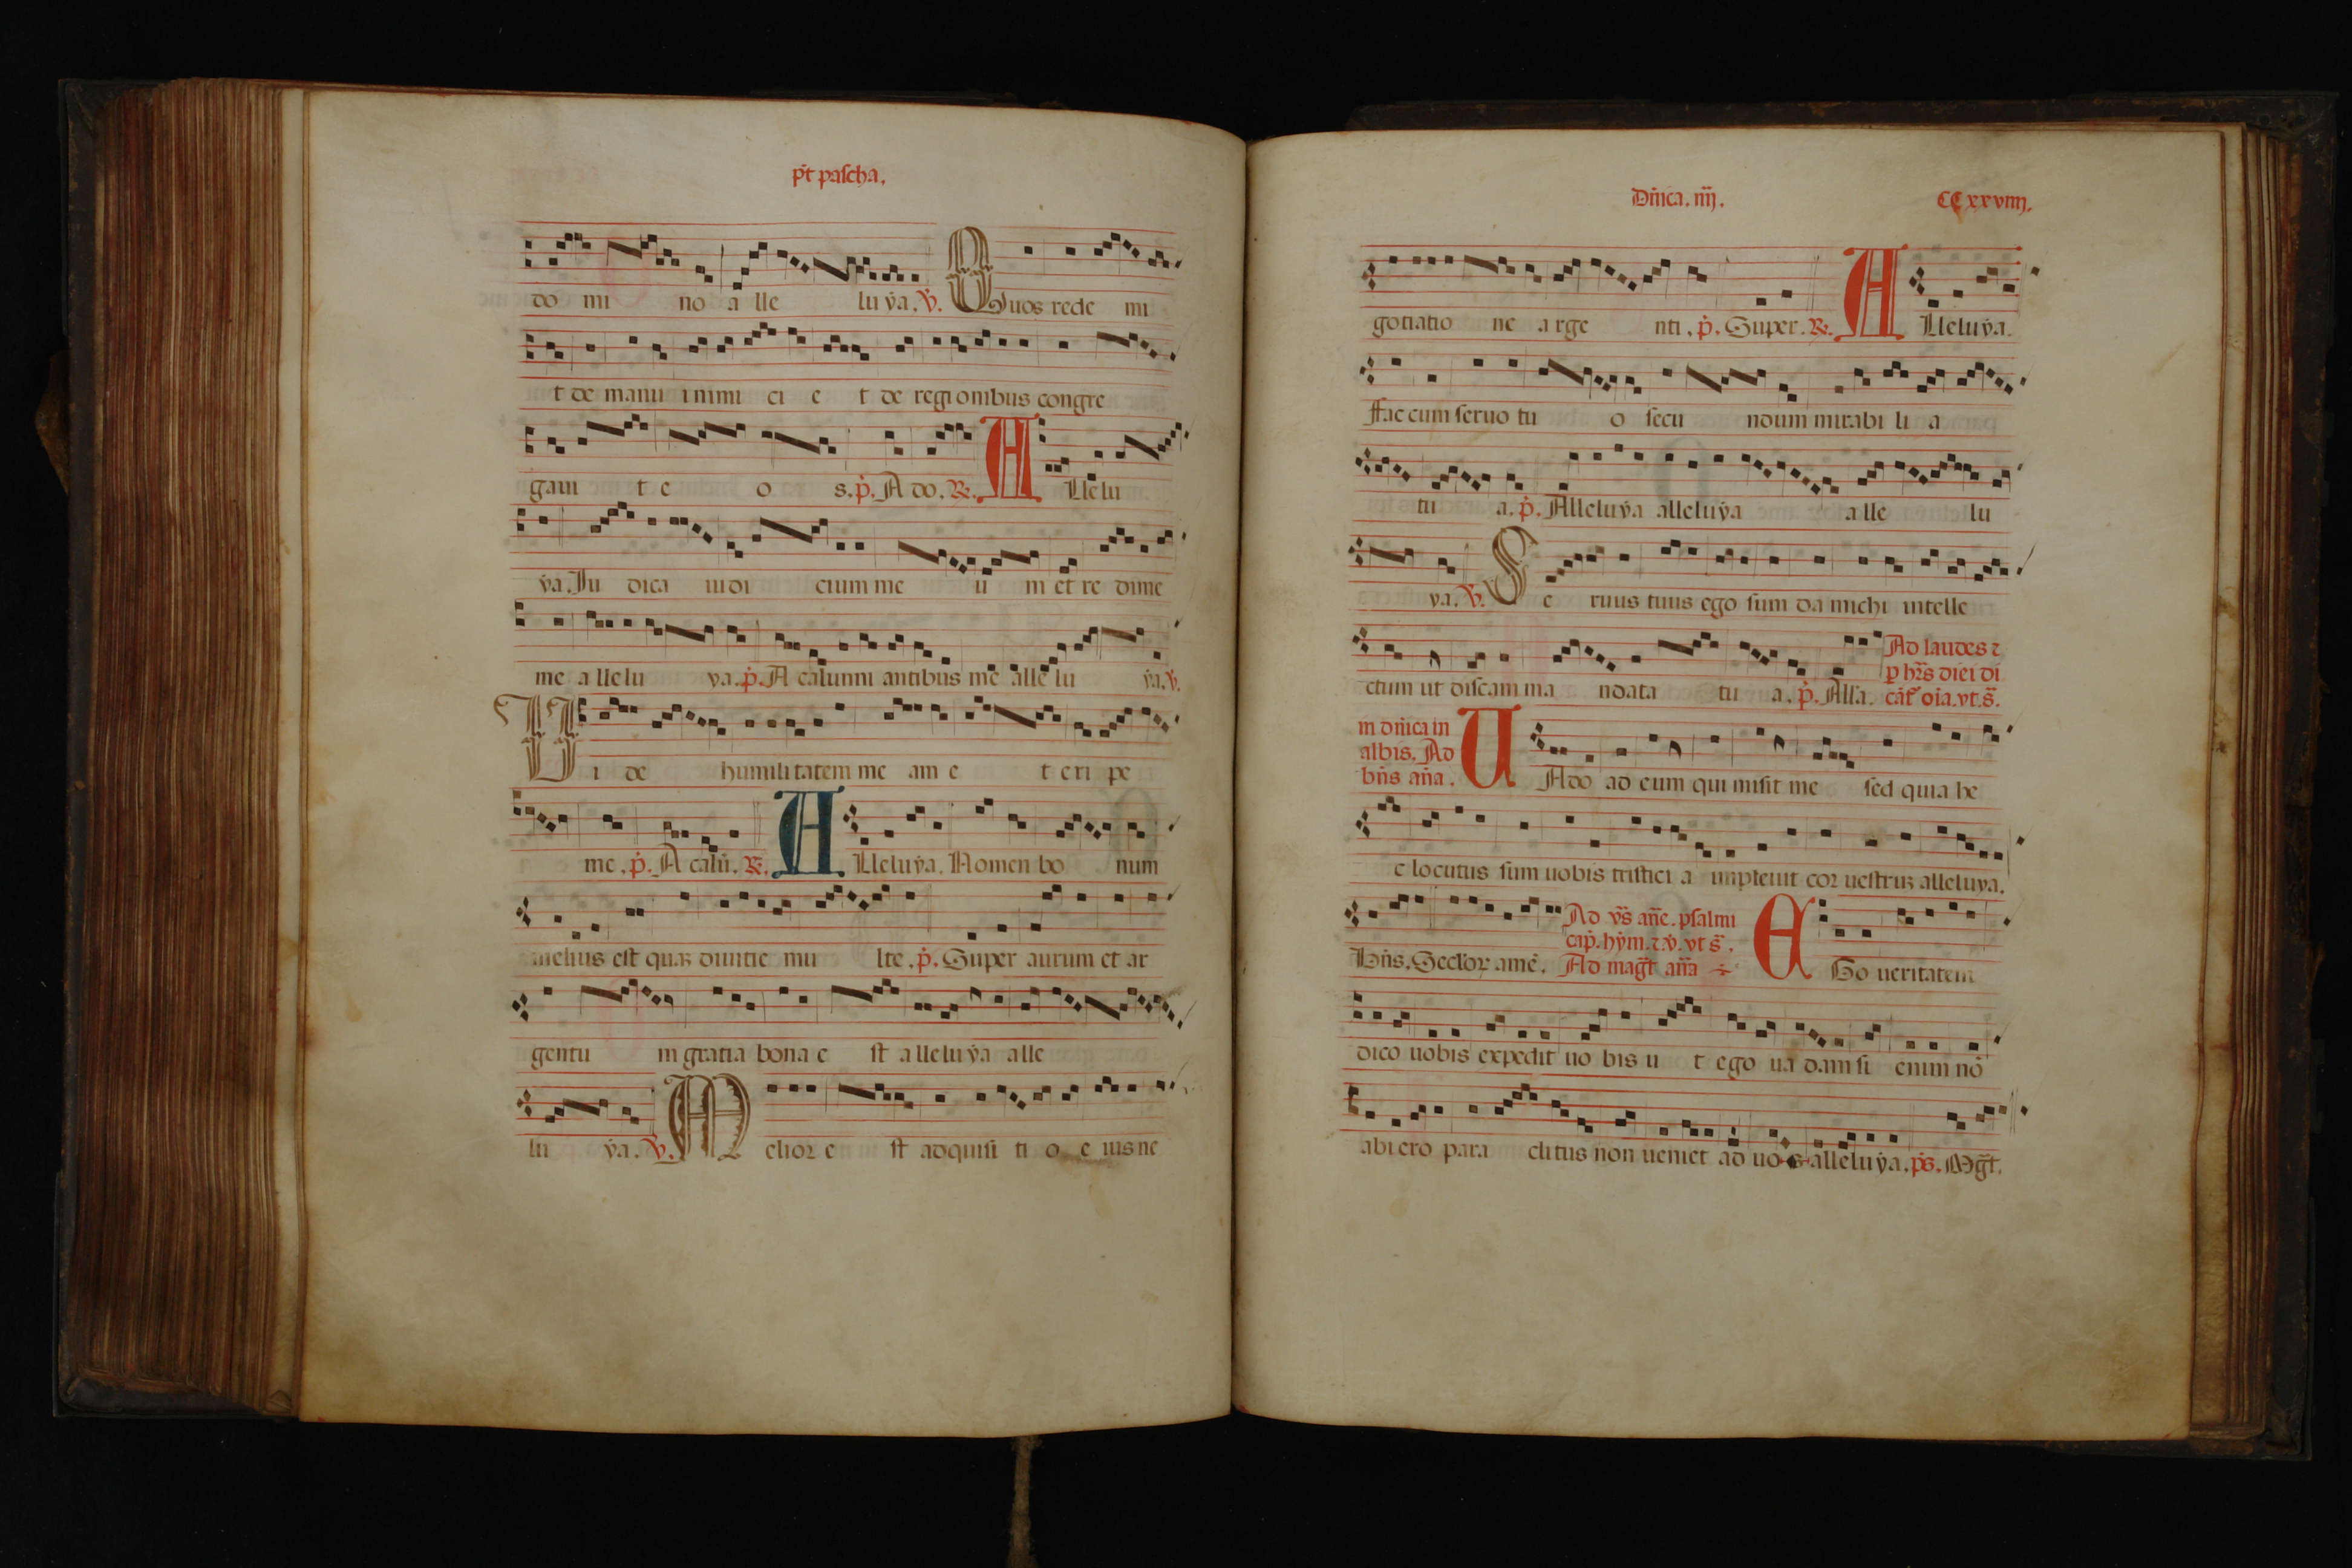 p̄t pascha.
do mi no a lle lu ẏa. ℣. Quos rede mi
t de manu inimi ci e t de regionibus congre
gaui t e o s. p̄. A do. ℟. A Lle lu
ẏa. Iu dica iudi cium me u m et re dime
me a lle lu ya. p̄. A calunni antibus me alle lu ẏa. ℣.
U i de humilitatem me am e t eri pe
me. p̄. A calū. ℟. A Lleluẏa. Nomen bo num
melius est quaꝫ diuitie mu lte. p̄. Super aurum et ar
gentu m gratia bona e st alleluẏa alle
lu ẏa. ℣. M elior e st adquisi ti o e ius ne
Dn̄ica. iiij. CCxxviiij.
gotiatio ne a rge nti. p̄. Super. ℟. A Lleluẏa.
Fac cum seruo tu o secu ndum mirabi li a
tu a. p̄. Alleluẏa alleluẏa a lle lu
ya. ℣. S e ruus tuus ego sum da michi intelle
ctum ut discam ma ndata tu a. p̄. All'a.
Ad laudes ⁊
ꝑ hr̄s diei di
cāt᷑ oīa. vt. s̄.
in dn̄ica in
albis. Ad
bn̄s an̄a.
U Ado ad eum qui misit me sed quia he
c locutus sum uobis tristici a impleuit cor uestruꝫ alleluya.
Bn̄s. Seclōꝝ amē.
Ad vs̄ an̄e. psalmi
cap̄. hẏm. ⁊ ℣. vt s̄.
Ad mag̅t an̄a
E Go ueritatem
dico uobis expedit uo bis u t ego ua dam si enim nō
abiero para clitus non ueniet ad uo s alleluẏa. p̄s. Mg̅t.